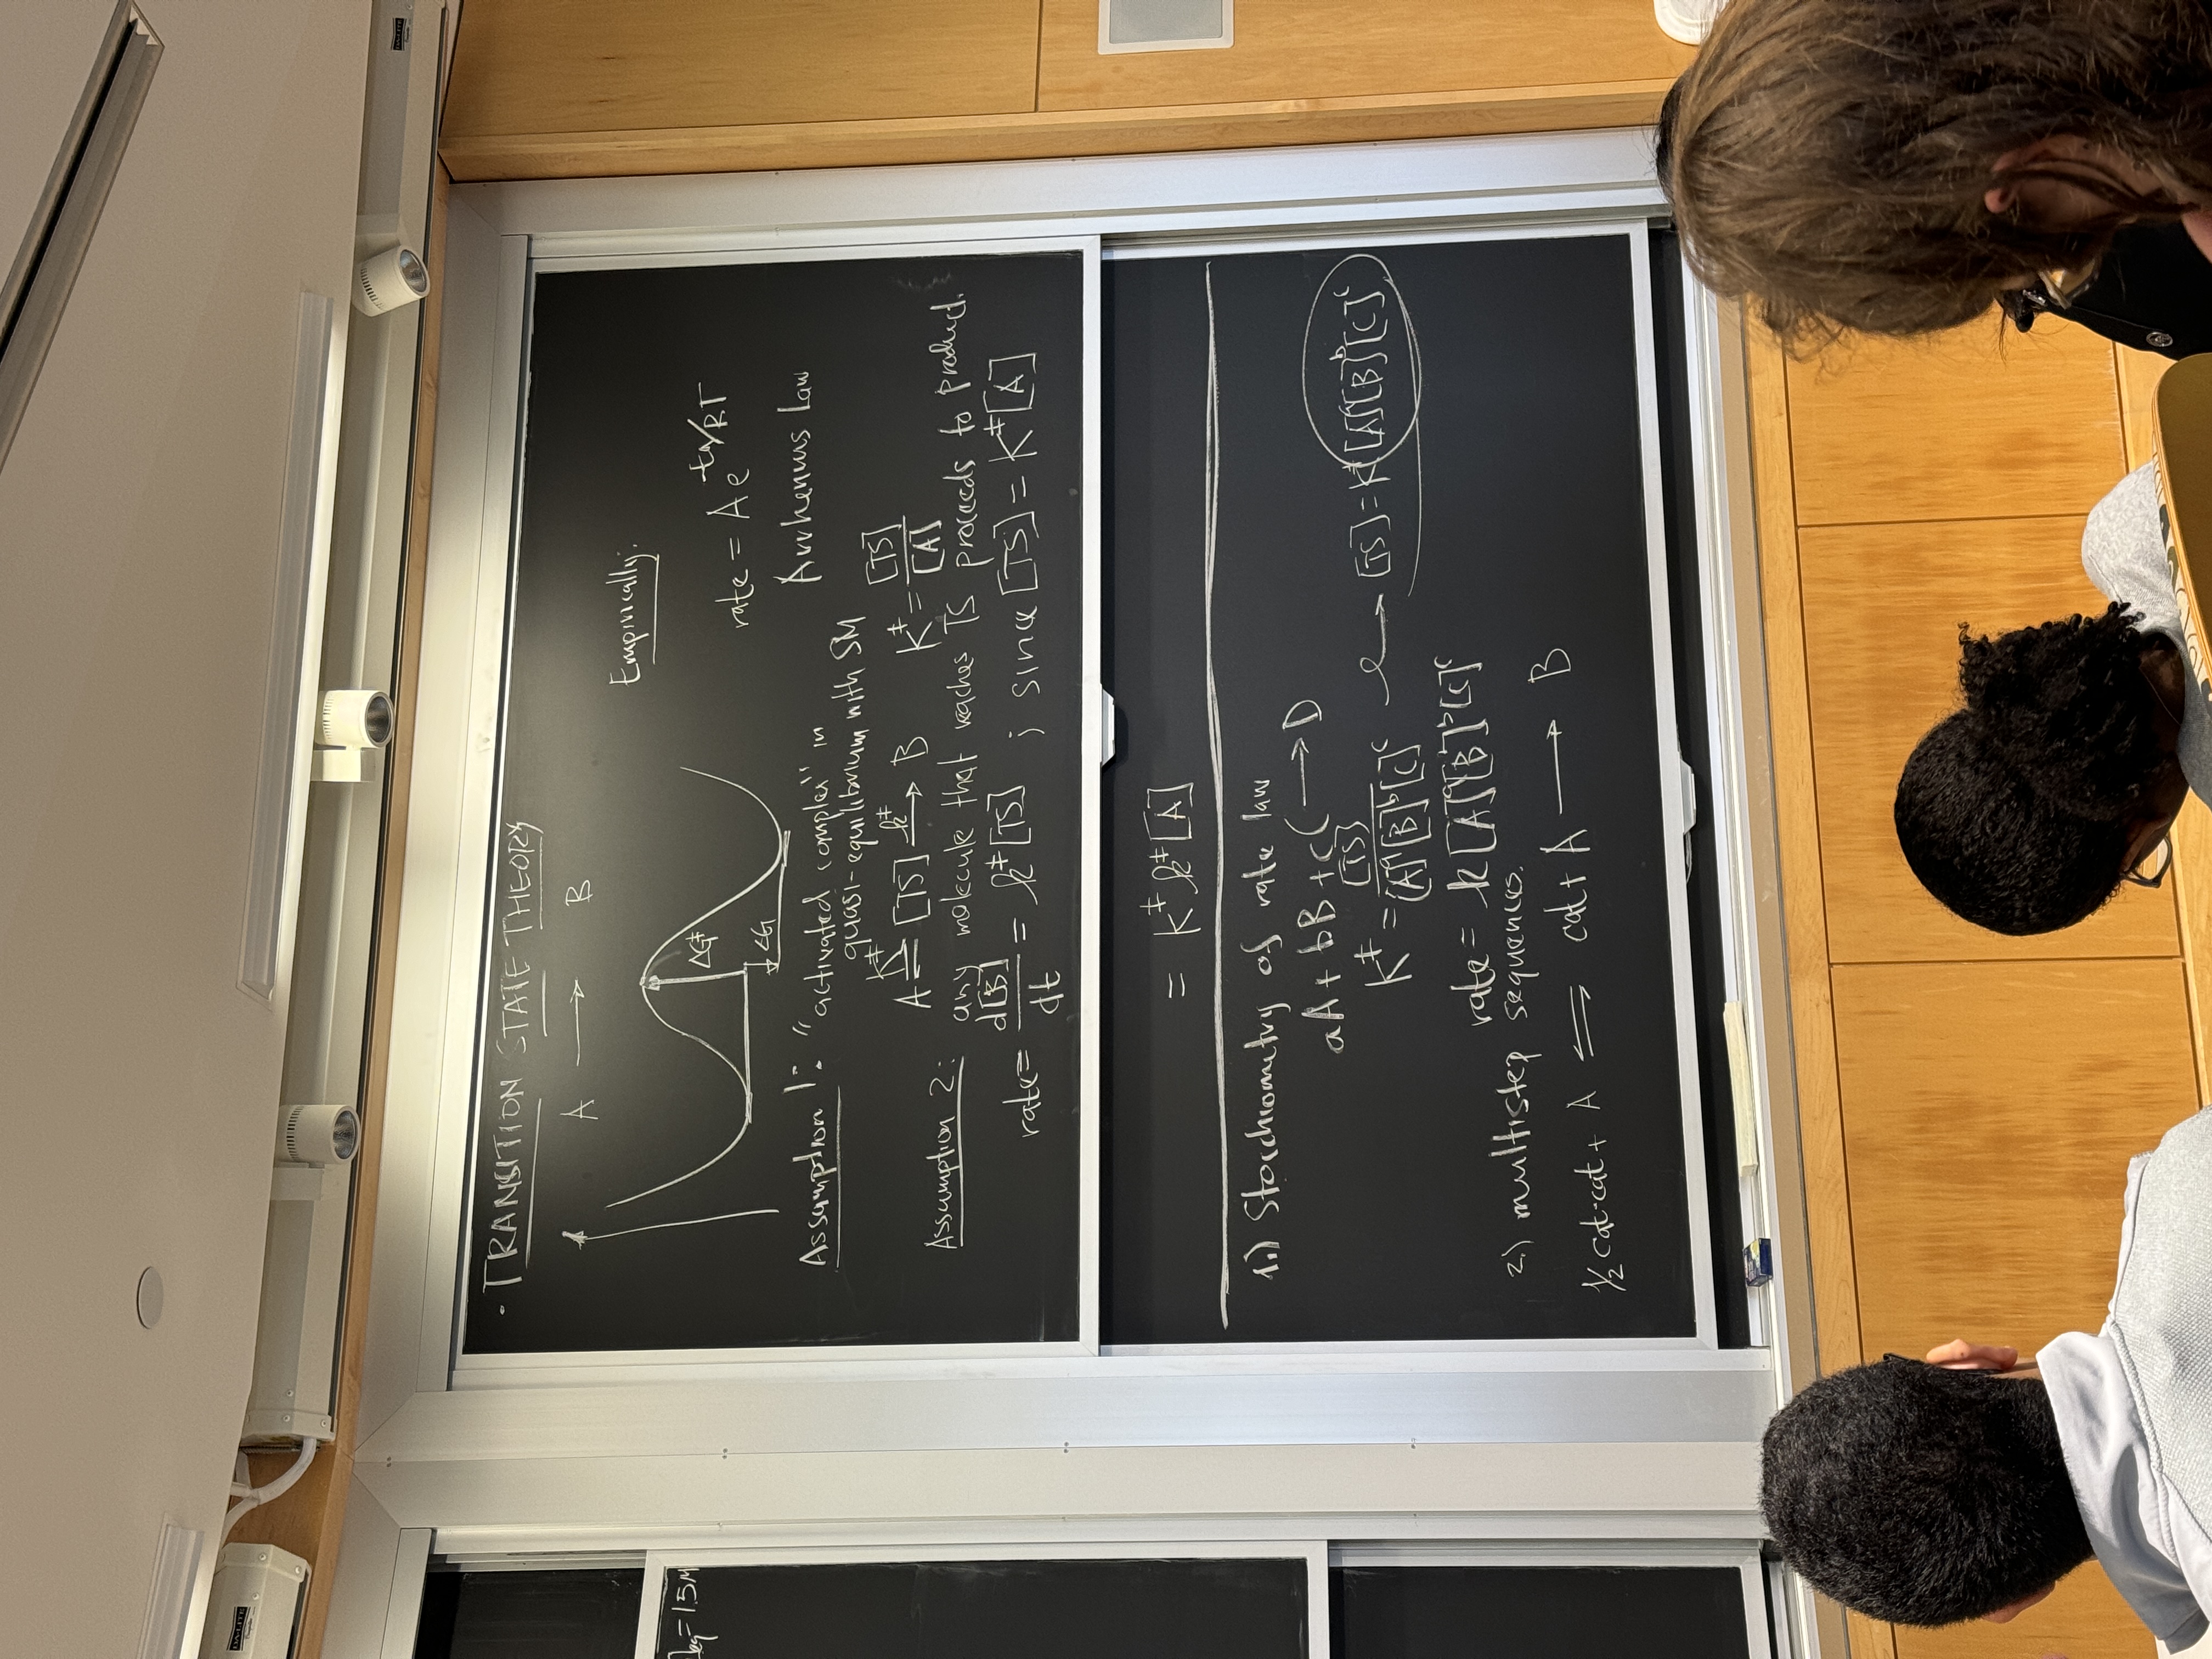 DA-LITE
DA-LITE
eq = 1.5M
· TRANSITION STATE THEORY
A ⟶ B
Empirically:
ΔG‡
ΔG
rate = A e^-Ea/RT
Arrhenius Law
Assumption 1: "activated complex" in
quasi-equilibrium with SM
A ⇌ [TS] ⟶ B
K‡ k‡
K‡ = [TS]/[A]
Assumption 2: any molecule that reaches TS proceeds to product.
rate = d[B]/dt = k‡[TS] ; since [TS] = K‡[A]
= K‡ k‡ [A]
1.) Stoichiometry of rate law
aA + bB + cC ⟶ D
K‡ = [TS]/[A]^a[B]^b[C]^c ⟶ [TS] = K‡[A]^a[B]^b[C]^c
rate = k[A]^a[B]^b[C]^c
2.) multistep sequences.
1/2 cat·cat + A ⇌ cat + A ⟶ B